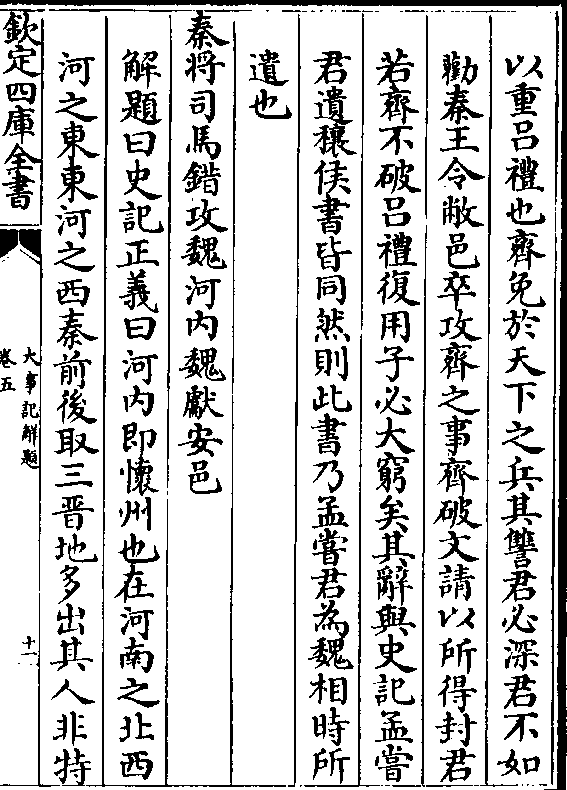 以重吕禮也齊免於天下之兵其讐君必深君不如
勸秦王令敝邑卒攻齊之事齊破文請以所得封君
若齊不破吕禮復用子必大窮矣其辭與史記孟嘗
君遺穰侯書皆同然則此書乃孟嘗君為魏相時所
遺也
秦将司馬錯攻魏河内魏獻安邑
解題曰史記正義曰河内即懷州也在河南之北西
河之東東河之西秦前後取三晋地多出其人非特
欽定四庫全書
大事記解題
卷五
十一